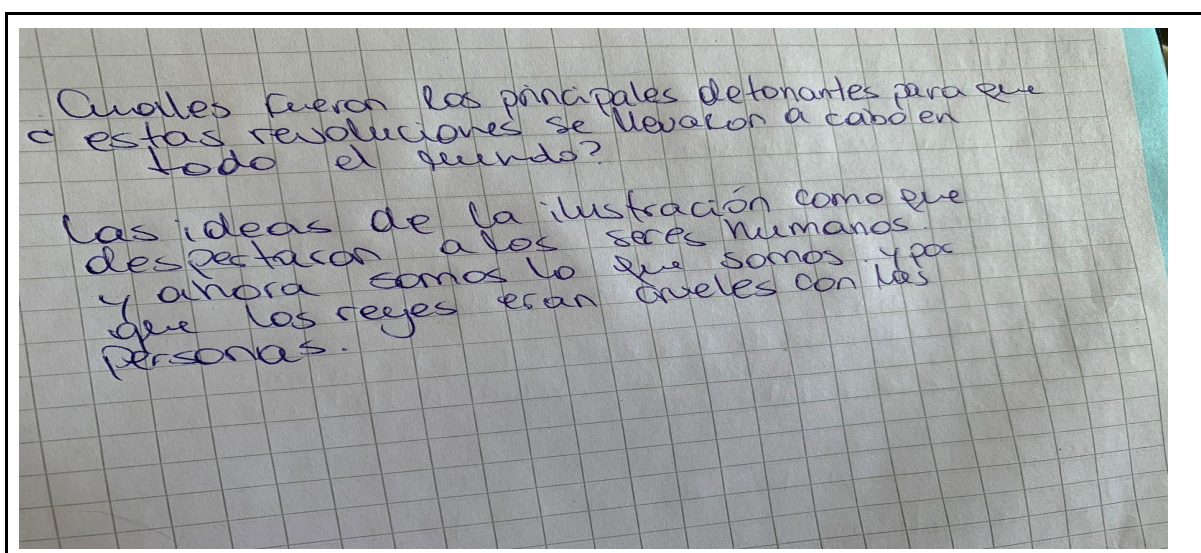 Cuales fueron los principales detonantes para que
estas revoluciones se llevaron a cabo en
todo el mundo?
Las ideas de la ilustración como que
despertaron a los seres humanos.
y ahora somos lo que somos y por
que los reyes eran crueles con las
personas.